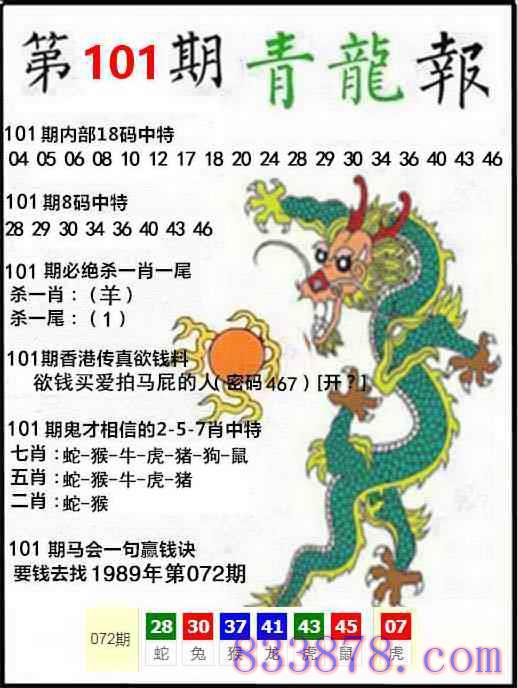 第101期 青龍報
101期内部18码中特
04 05 06 08 10 12 17 18 20 24 28 29 30 34 36 40 43 46
101期8码中特
28 29 30 34 36 40 43 46
101期必绝杀一肖一尾
杀一肖：（羊）
杀一尾：（1）
101期香港传真欲钱料
欲钱买爱拍马屁的人(密码467)[开？]
101期鬼才相信的2-5-7肖中特
七肖：蛇-猴-牛-虎-猪-狗-鼠
五肖：蛇-猴-牛-虎-猪
二肖：蛇-猴
101期马会一句赢钱诀
要钱去找1989年第072期
072期 28 30 37 41 43 45 07
蛇 兔 猴 龙 虎 鼠 虎
833878.com